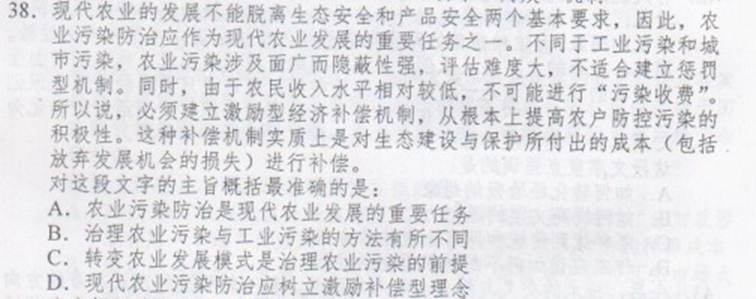 38. 现代农业的发展不能脱离生态安全和产品安全两个基本要求，因此，农
业污染防治应作为现代农业发展的重要任务之一。不同于工业污染和城
市污染，农业污染涉及面广而隐蔽性强，评估难度大，不适合建立惩罚
型机制。同时，由于农民收入水平相对较低，不可能进行“污染收费”。
所以说，必须建立激励型经济补偿机制，从根本上提高农户防控污染的
积极性。这种补偿机制实质上是对生态建设与保护所付出的成本（包括
放弃发展机会的损失）进行补偿。
对这段文字的主旨概括最准确的是：
A．农业污染防治是现代农业发展的重要任务
B．治理农业污染与工业污染的方法有所不同
C．转变农业发展模式是治理农业污染的前提
D．现代农业污染防治应树立激励补偿型理念